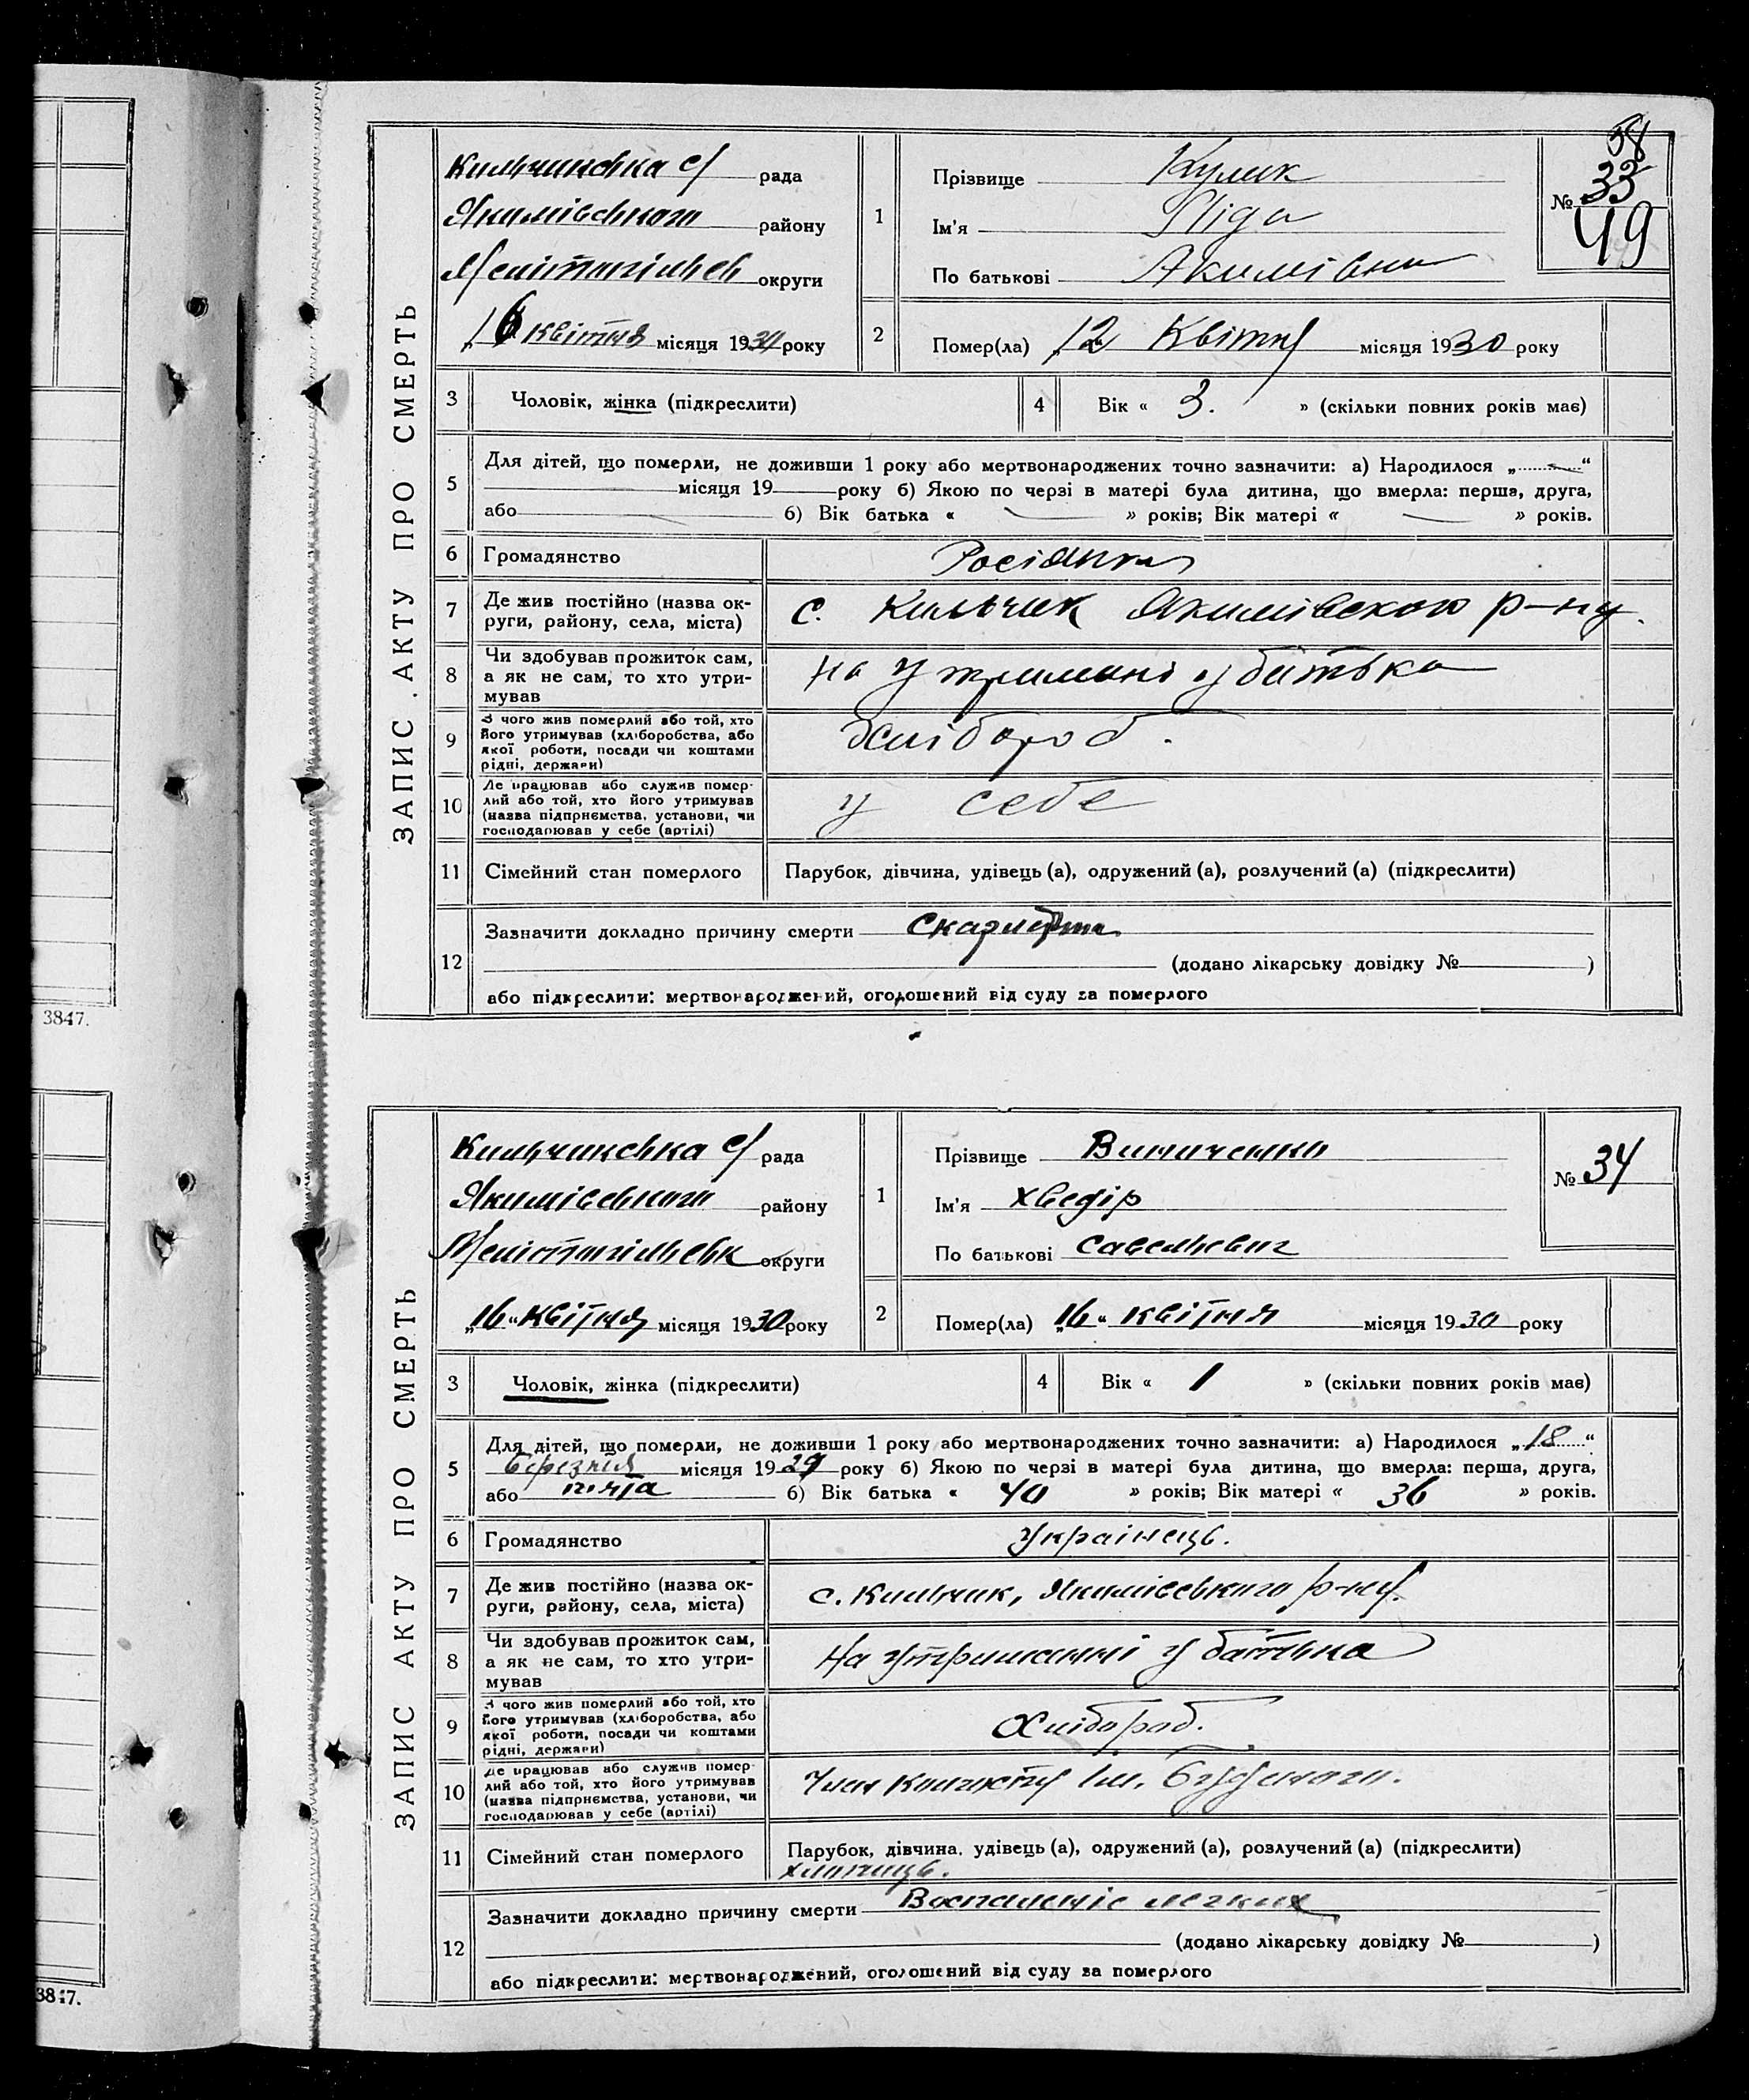 ЗАПИС АКТУ ПРО СМЕРТЬ
Кильчикська с/ рада
Якимівського району
Мелітопільськ округи
16 квітня місяця 1930 року
1
Прізвище Кулик
Ім'я Ліда
По батькові Акимівна
№ 33
49
2
Помер(ла) 12 Квітня місяця 1930 року
3 Чоловік, жінка (підкреслити)
4 Вік « 3. » (скільки повних років має)
5 Для дітей, що померли, не доживши 1 року або мертвонароджених точно зазначити: а) Народилося „ “
місяця 19 року б) Якою по черзі в матері була дитина, що вмерла: перша, друга,
або б) Вік батька « » років; Вік матері « » років.
6 Громадянство Росіянка
7 Де жив постійно (назва округи, району, села, міста) с. Кильчик Якимівского р-ну.
8 Чи здобував прожиток сам, а як не сам, то хто утримував на утримані у батька
9 З чого жив померлий або той, хто його утримував (хліборобства, або якої роботи, посади чи коштами рідні, держави) Хлібороб.
10 Де працював або служив померлий або той, хто його утримував (назва підприємства, установи, чи господарював у себе (артілі) у себе
11 Сімейний стан померлого Парубок, дівчина, удівець (а), одружений (а), розлучений (а) (підкреслити)
12 Зазначити докладно причину смерти Скарлатина
(додано лікарську довідку № )
або підкреслити: мертвонароджений, оголошений від суду за померлого
3847.
ЗАПИС АКТУ ПРО СМЕРТЬ
Кильчикська с/ рада
Якимівського району
Мелітопільськ округи
„16“ квітня місяця 1930 року
1
Прізвище Виниченко
Ім'я Хведір
По батькові Савельевич
№ 34
2
Помер(ла) „16“ квітня місяця 1930 року
3 Чоловік, жінка (підкреслити)
4 Вік « 1 » (скільки повних років має)
5 Для дітей, що померли, не доживши 1 року або мертвонароджених точно зазначити: а) Народилося „18“
березня місяця 1929 року б) Якою по черзі в матері була дитина, що вмерла: перша, друга,
або пята б) Вік батька « 40 » років; Вік матері « 36 » років.
6 Громадянство Українець.
7 Де жив постійно (назва округи, району, села, міста) с. Кильчик, Якимівського р-ну.
8 Чи здобував прожиток сам, а як не сам, то хто утримував На утриманні у батька
9 З чого жив померлий або той, хто його утримував (хліборобства, або якої роботи, посади чи коштами рідні, держави) Хлібороб.
10 Де працював або служив померлий або той, хто його утримував (назва підприємства, установи, чи господарював у себе (артілі) Член колгоспу Ім. Будьоного.
11 Сімейний стан померлого Парубок, дівчина, удівець (а), одружений (а), розлучений (а) (підкреслити)
хлопець.
12 Зазначити докладно причину смерти Воспаленіе легких
(додано лікарську довідку № )
або підкреслити: мертвонароджений, оголошений від суду за померлого
3847.